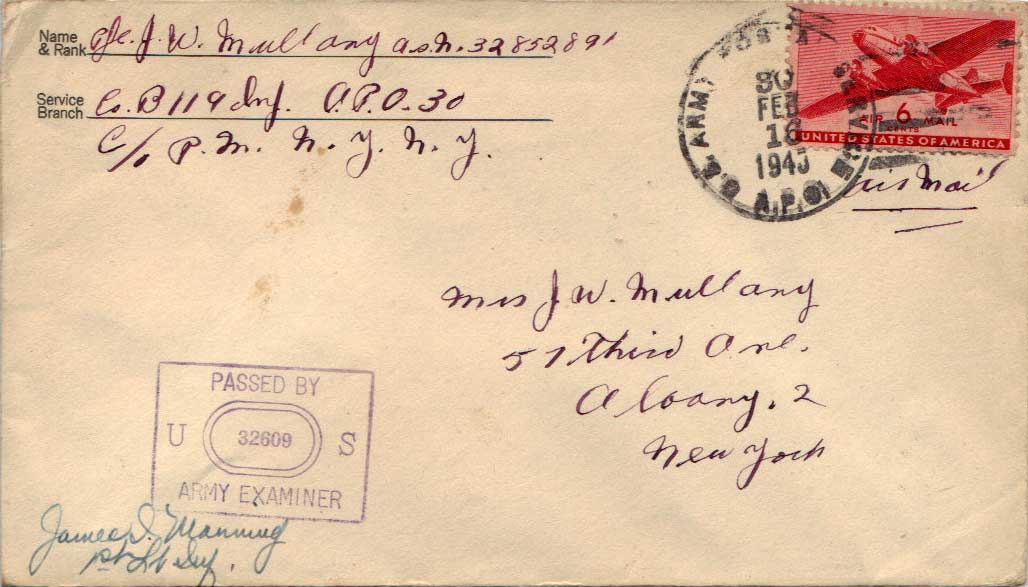 Name & Rank Pfc. J. W. Mullany A.S.N. 32852891
Service Branch Co. B 119 Inf. A.P.O. 30
C/o P.M. N.Y. N.Y.
U.S. ARMY
30
FEB
16
1945
A.P.O.
SERVICE
AIR 6 MAIL
CENTS
UNITED STATES OF AMERICA
Air Mail
Mrs J. W. Mullany
57 Third Ave.
Albany, 2
New York
PASSED BY
U 32609 S
ARMY EXAMINER
James D. Manning
1st Lt Inf.